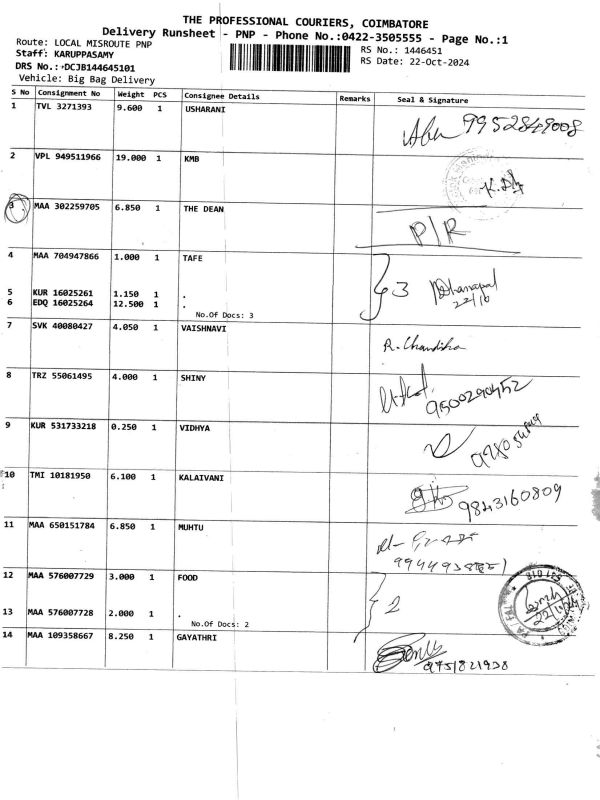 THE PROFESSIONAL COURIERS, COIMBATORE
Delivery Runsheet - PNP - Phone No.:0422-3505555 - Page No.:1
Route: LOCAL MISROUTE PNP
RS No.: 1446451
Staff: KARUPPASAMY
RS Date: 22-Oct-2024
DRS No.: DCJB144645101
Vehicle: Big Bag Delivery
S No Consignment No Weight PCS Consignee Details Remarks Seal & Signature
1 TVL 3271393 9.600 1 USHARANI 9952849008
2 VPL 949511966 19.000 1 KMB
3 MAA 302259705 6.850 1 THE DEAN P/R
4 MAA 704947866 1.000 1 TAFE
3 Dhanapal
22/10
5 KUR 16025261 1.150 1 .
6 EDQ 16025264 12.500 1 .
No.Of Docs: 3
7 SVK 40080427 4.050 1 VAISHNAVI R. Chandika
8 TRZ 55061495 4.000 1 SHINY 9500290452
9 KUR 531733218 0.250 1 VIDHYA
10 TMI 10181950 6.100 1 KALAIVANI 9843160809
11 MAA 650151784 6.850 1 MUHTU
12 MAA 576007729 3.000 1 FOOD
2
22/10/24
13 MAA 576007728 2.000 1 .
No.Of Docs: 2
14 MAA 109358667 8.250 1 GAYATHRI
9751821938